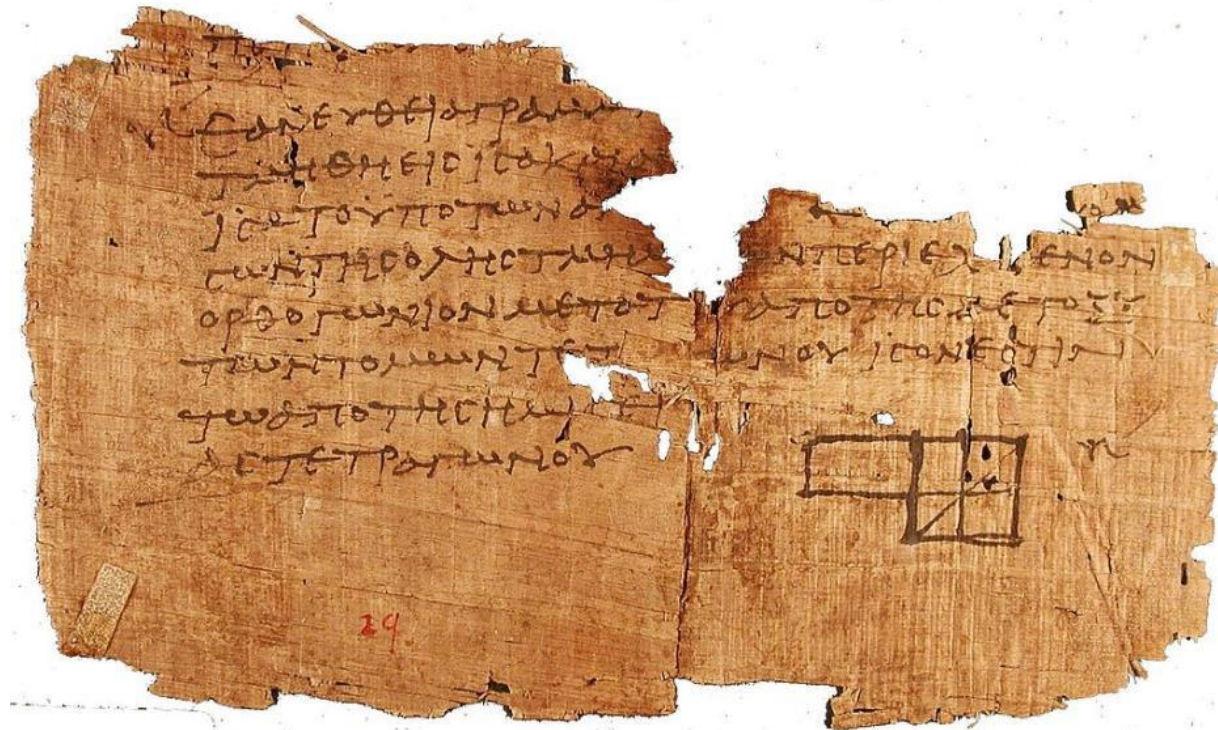 ΕΑΝΕΥΘΕΙΑΓΡΑΜΜ
ΤΜΗΘΗΕΙCΙCΑΚΑΙΑΝ
ΙCΑΤΟΥΠΟΤΩΝΑΝ
CΩΝΤΗCΟΛΗCΤΜΗΜ ΩΝΠΕΡΙΕΧ ΜΕΝΟΝ
ΟΡΘΟΓΩΝΙΟΝΜΕΤΑΤΟΥ ΑΠΟΤΗCΜΕΤΟΞΥ
ΤΩΝΤΟΜΩΝΤΕΤ ΩΝΟΥΙCΟΝΕCΤΙΝ
ΤΩΑΠΟΤΗCΗΜΙCΕΙ
ΑCΤΕΤΡΑΓΩΝΟΥ
29